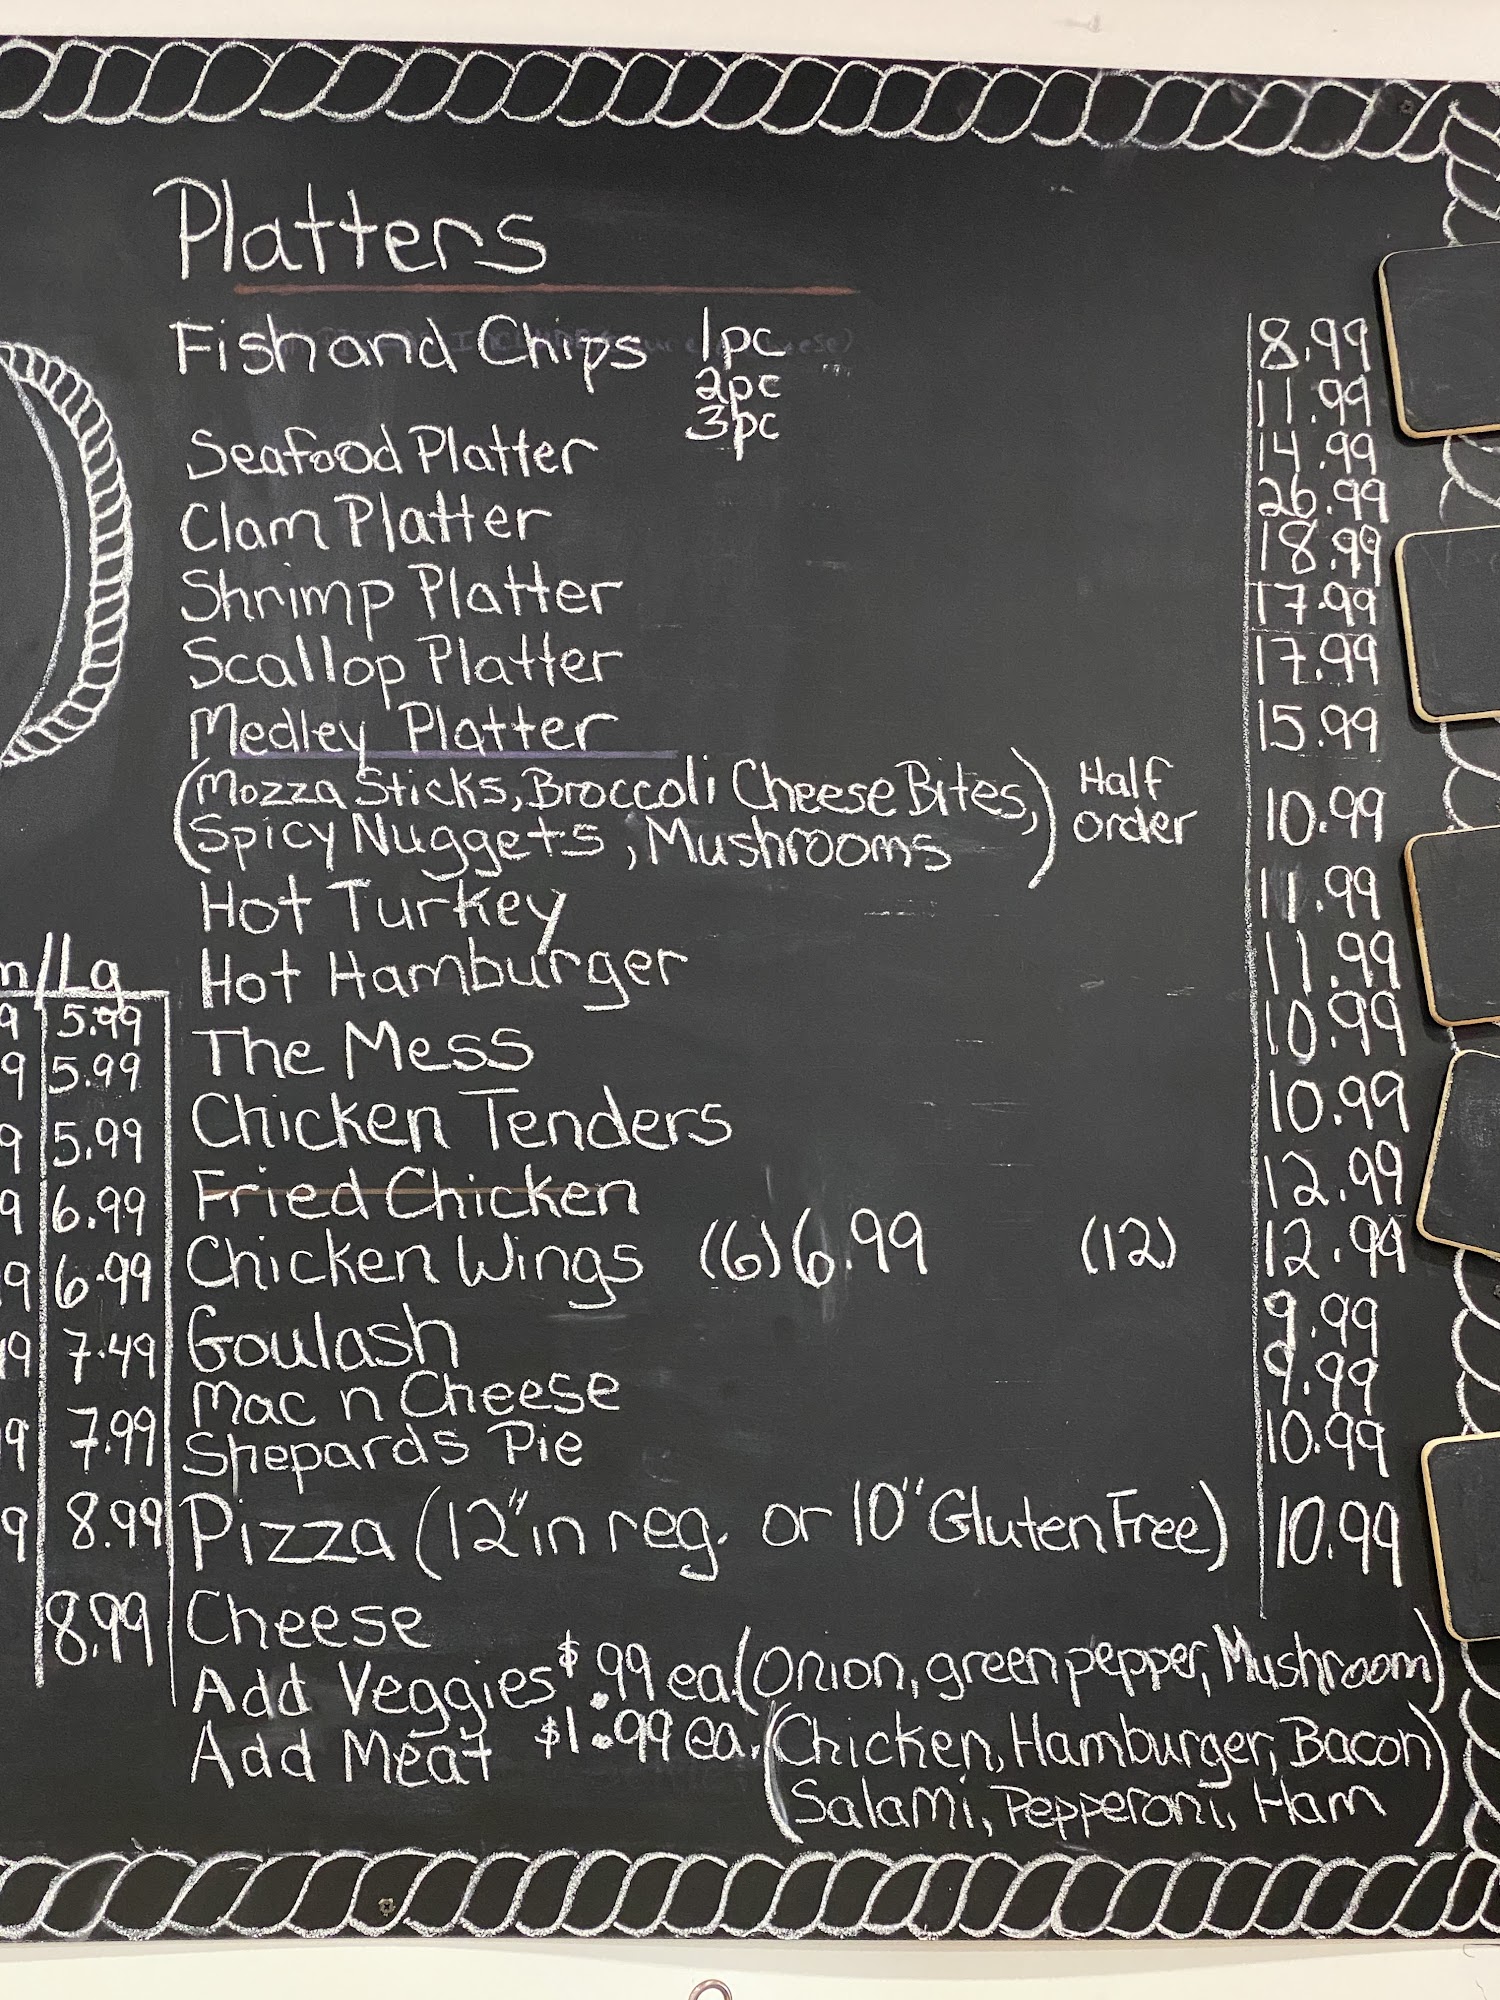 Platters
Fish and Chips 1pc 8.99
2pc 11.99
3pc 14.99
Seafood Platter 26.99
Clam Platter 18.99
Shrimp Platter 17.99
Scallop Platter 17.99
Medley Platter 15.99
(Mozza Sticks, Broccoli Cheese Bites, Half
Spicy Nuggets, Mushrooms) order 10.99
Hot Turkey 11.99
Hot Hamburger 11.99
The Mess 10.99
Chicken Tenders 10.99
Fried Chicken 12.99
Chicken Wings (6) 6.99 (12) 12.99
Goulash 9.99
Mac n Cheese 9.99
Shepards Pie 10.99
Pizza (12" in reg. or 10" Gluten Free) 10.99
Cheese
Add Veggies $.99 ea (Onion, green pepper, Mushroom)
Add Meat $1.99 ea. (Chicken, Hamburger, Bacon
Salami, Pepperoni, Ham)
/Lg
9 5.99
9 5.99
9 5.99
9 6.99
9 6.99
9 7.49
9 7.99
9 8.99
8.99